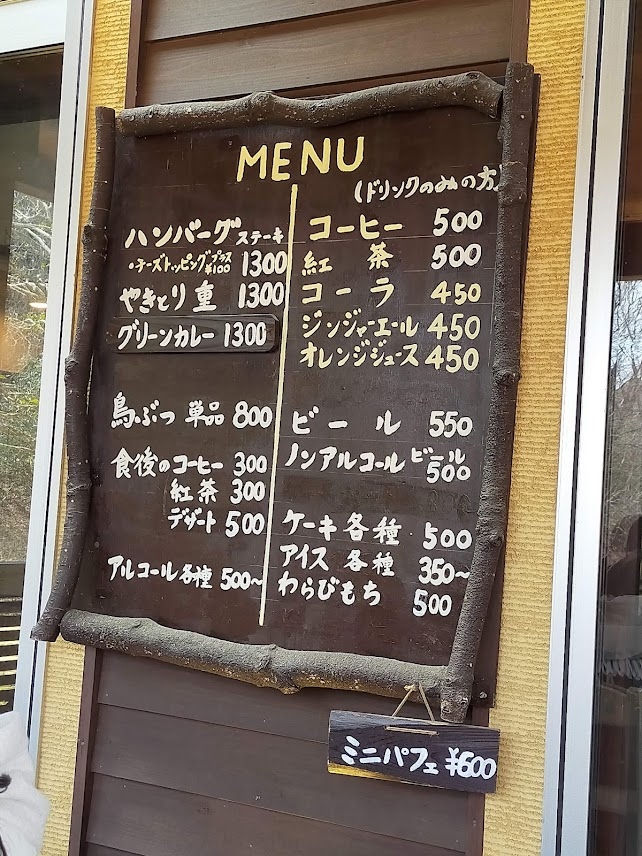 MENU
ハンバーグステーキ
・チーズトッピングプラス¥100 1300
やきとり重 1300
グリーンカレー 1300
鳥ぶつ 単品 800
食後のコーヒー 300
紅茶 300
デザート 500
アルコール各種 500〜
(ドリンクのみの方)
コーヒー 500
紅茶 500
コーラ 450
ジンジャーエール 450
オレンジジュース 450
ビール 550
ノンアルコールビール 500
ケーキ各種 500
アイス各種 350〜
わらびもち 500
ミニパフェ ¥600